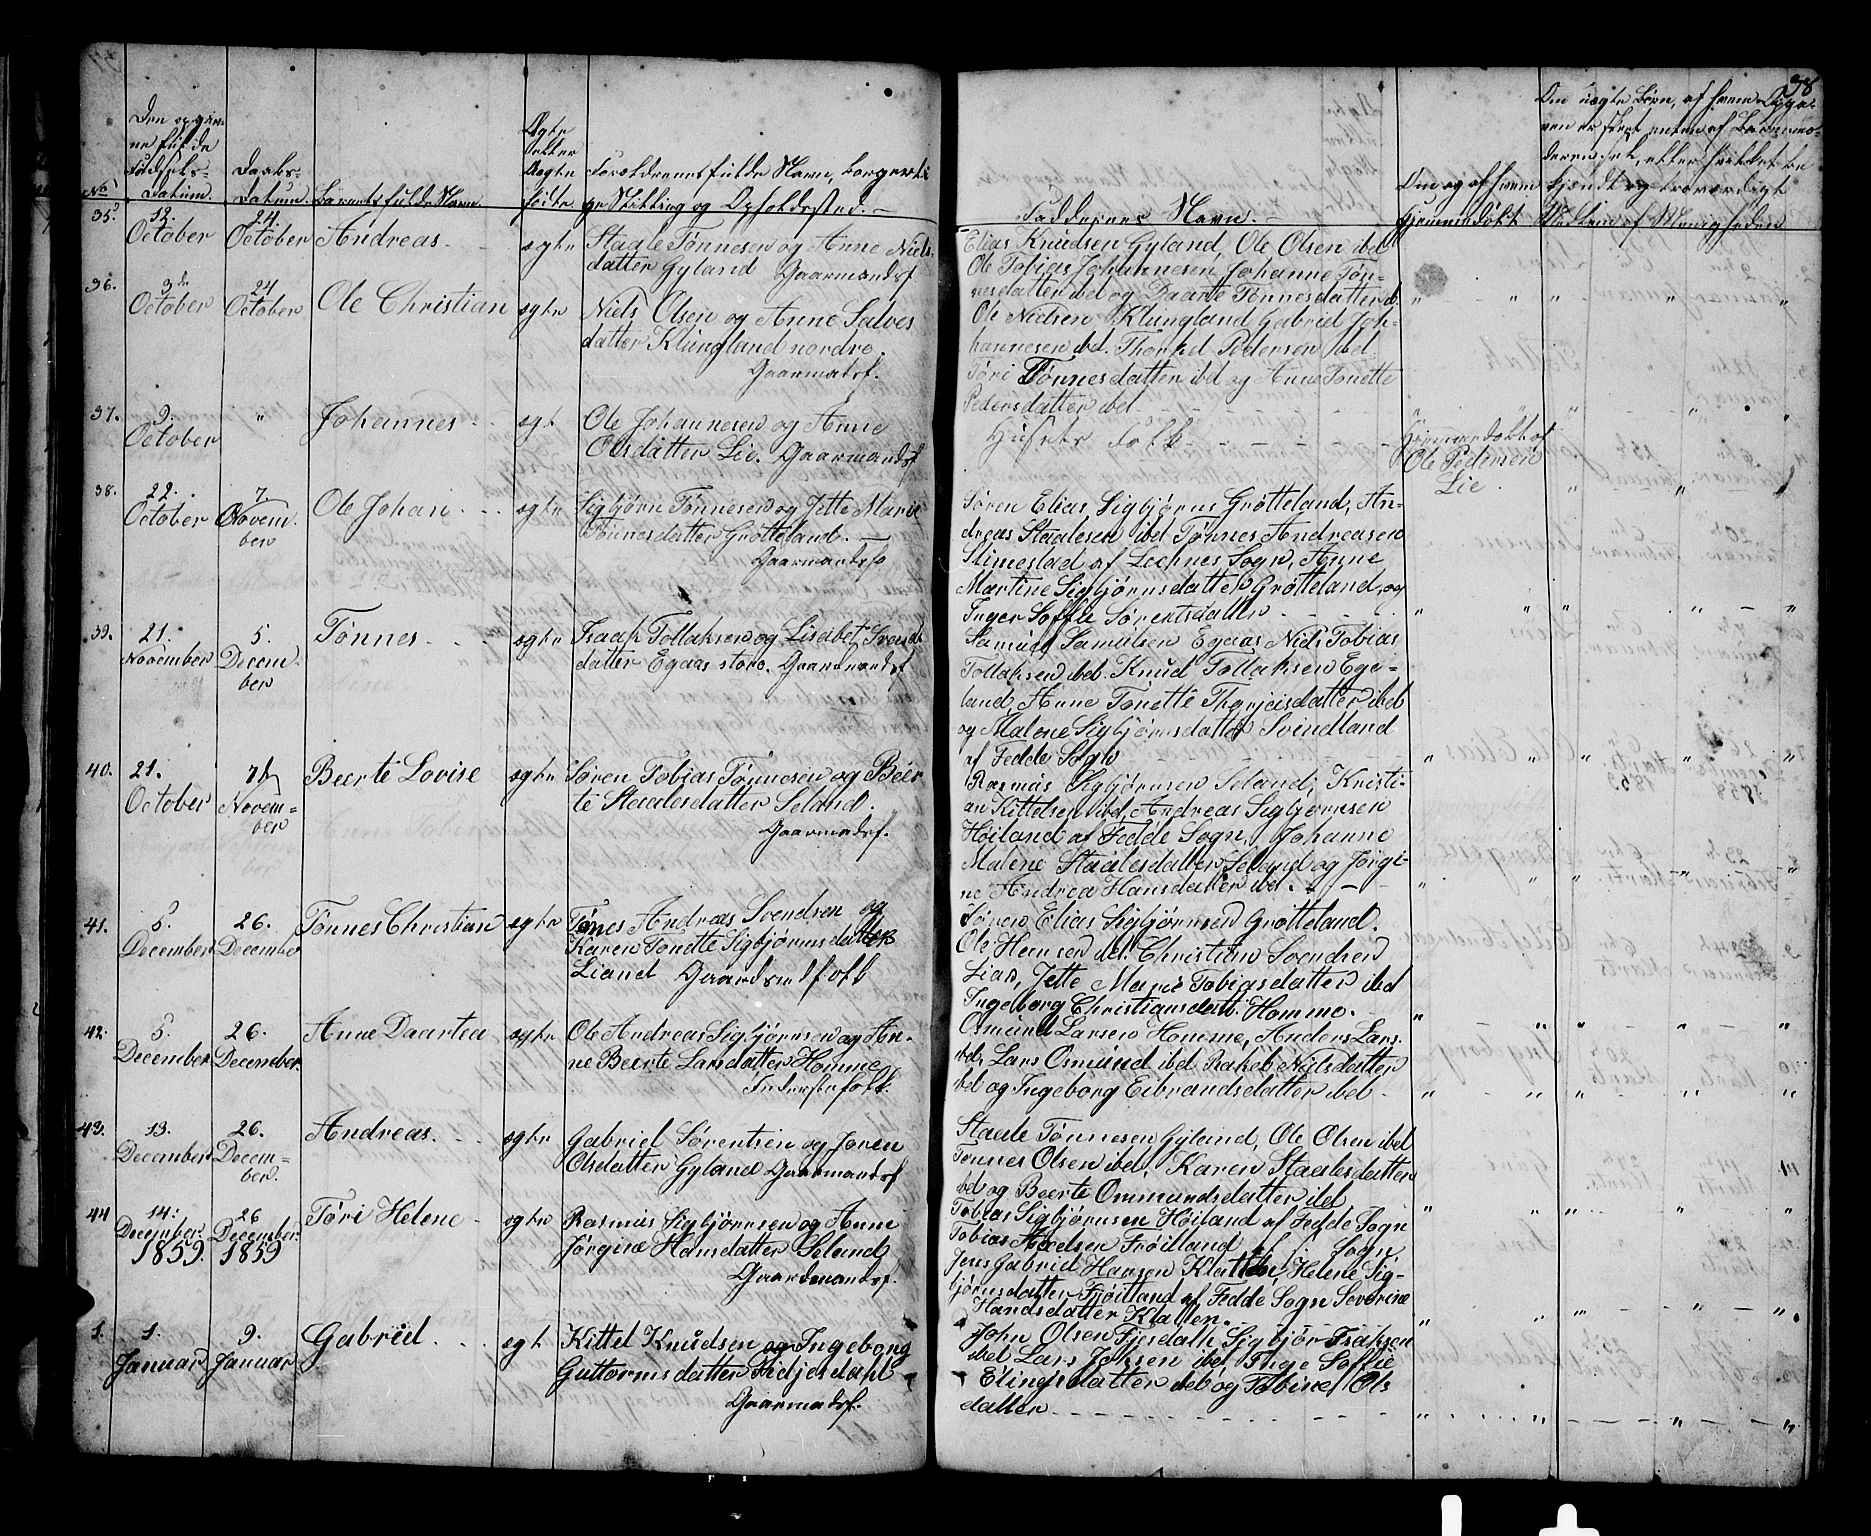 38
Den opgiv-
ne fulde
Fødsels-
Datum.
No
Daabs-
Datum.
Barnets fulde Navn.
Ægte
eller
Uægte
fødte
Forældrenes fulde Navn, borgerli
ge Stilling og Opholdssted. —
Faddernes Navn. —
Om og af hvem
hjemmedøbt
Om uægte Børn, af hvem Opga-
ven er skeet enten af Barnemo-
deren selv, eller hvilket be
kjendt og troværdigt
Medlem af Menigheden
35. 12. October 24 October Andreas. ægte
Staale Tønnesen og Anne Niels-
datter Gyland Gaarmandsf
Elias Knudsen Gyland, Ole Olsen ibd
Ole Tobias Johannesen, Johanne Tøn-
nesdatter ibd og Daarte Tønnesdatter ib
36. 3de October 24 October Ole Christian ægte
Niels Olsen og Anne Salves
datter Klungland nordre.
Gaarmadsf.
Ole Nielsen Klungland Gabriel Joh-
hannesen ibd. Thorkel Pedersen ibd.
Tøri Tønnesdatter ibd og Anne Tonette
Pedersdatter ibd
37. 9. October " Johannes ægte
Ole Johannesen og Anne
Olsdatter Lie. Gaarmandsf
Husets Folk
Hjemmedøbt af
Ole Pedersen
Lie.
38. 22. October 7 Novem-
ber
Ole Johan ægte
Sigbjørn Tønnesen og Jette Marie
Tønnesdatter Grøtteland. —
Gaarmandsf
Søren Elias Sigbjørns Grøtteland, An-
dreas Staalesen ibd Tønnes Andreasen
Slimestad af Lechnes Sogn, Anne
Martine Sigbjørnsdatter Grøtteland, og
Inger Soffie Sørentsdatter
39. 21. November 5. Decem-
ber
Tønnes ægte
Isaak Tollaksen og Lisabet Svends
datter Egaas store. Gaardmandsf
Samuel Samuelsen Egaas Niels Tobias
Tollaksen ibd. Knud Tollaksen Ege-
land, Anne Tonette Thorjeisdatter ibd
og Malene Sigbjørnsdatter Svindland
af Fedde Sogn
40. 21. October 7de Novem-
ber
Beerte Lovise ægte
Søren Tobias Tønnesen og Beer
te Staalesdatter Seland.
Gaarmadsf.
Rasmus Sigbjørnsen Seland, Kristi-
an Kittelsen ibd, Andreas Sigbjørnsen
Høiland af Fedde Sogn, Johanne
Malene Staalesdatter Seland og Jørgi-
ne Andrea Hansdatter ibd.
41. 5. December 26. December Tønnes Christian ægte
Tønes Andreas Svendsen og
Karen Tonette Sigbjørnsdatter
Lianet Gaardmedfolk
Søren Elias Sigbjørnsen Grøtteland.
Ole Hemsen ibd. Christian Svendsen
Lian, Jette Marie Tobiasdatter ibd
Ingeborg Christiansdatt. Homme.
42. 5. December 26. December. Anne Daartea ægte
Ole Andreas Sigbjørnsen og An-
ne Beerte Larsdatter Homme
Inderstefolk.
Osmund Larsen Homme, Anders Lars.
ibd, Lars Osmund ibd Rakel Nielsdatter
ibd og Ingeborg Eibrandsdatter ibd
43. 13. December 26. Decem-
ber.
Andreas. ægte
Gabriel Sørentsen og Joren
Olsdatter Gyland Gaarmandsf
Staale Tønnesen Gyland, Ole Olsen ibd
Tønnes Olsen ibd, Karen Staalesdatter
ibd og Beerte Ommundsdatter ibd
44 14. December. 26 December. Tøri Helene ægte
Rasmus Sigbjørnsen og Anne
Jørgine Hansdatter Seland
Gaardmandsf.
Tobias Sigbjørnsen Høiland af Fedde Sogn
Tobias Axelsen Frøitland
Jens Gabriel Hansen Klatten, Helene Sig-
bjørnsdatter Frøitland af Fedde Sogn Severine
Handsdatter Klatten.
1859. 1859
1. 1. Januar 9. Januar Gabriel ægt
Kittel Knudsen og Ingeborg
Guttormsdatter Fidjesdahl
Gaarmadsf.
John Olsen Fjesdahl, Sigbjør Isaksen
ibd Lars Johsen ibd, Inge Soffie
Elingsdatter ibd og Tobine Ols
datter